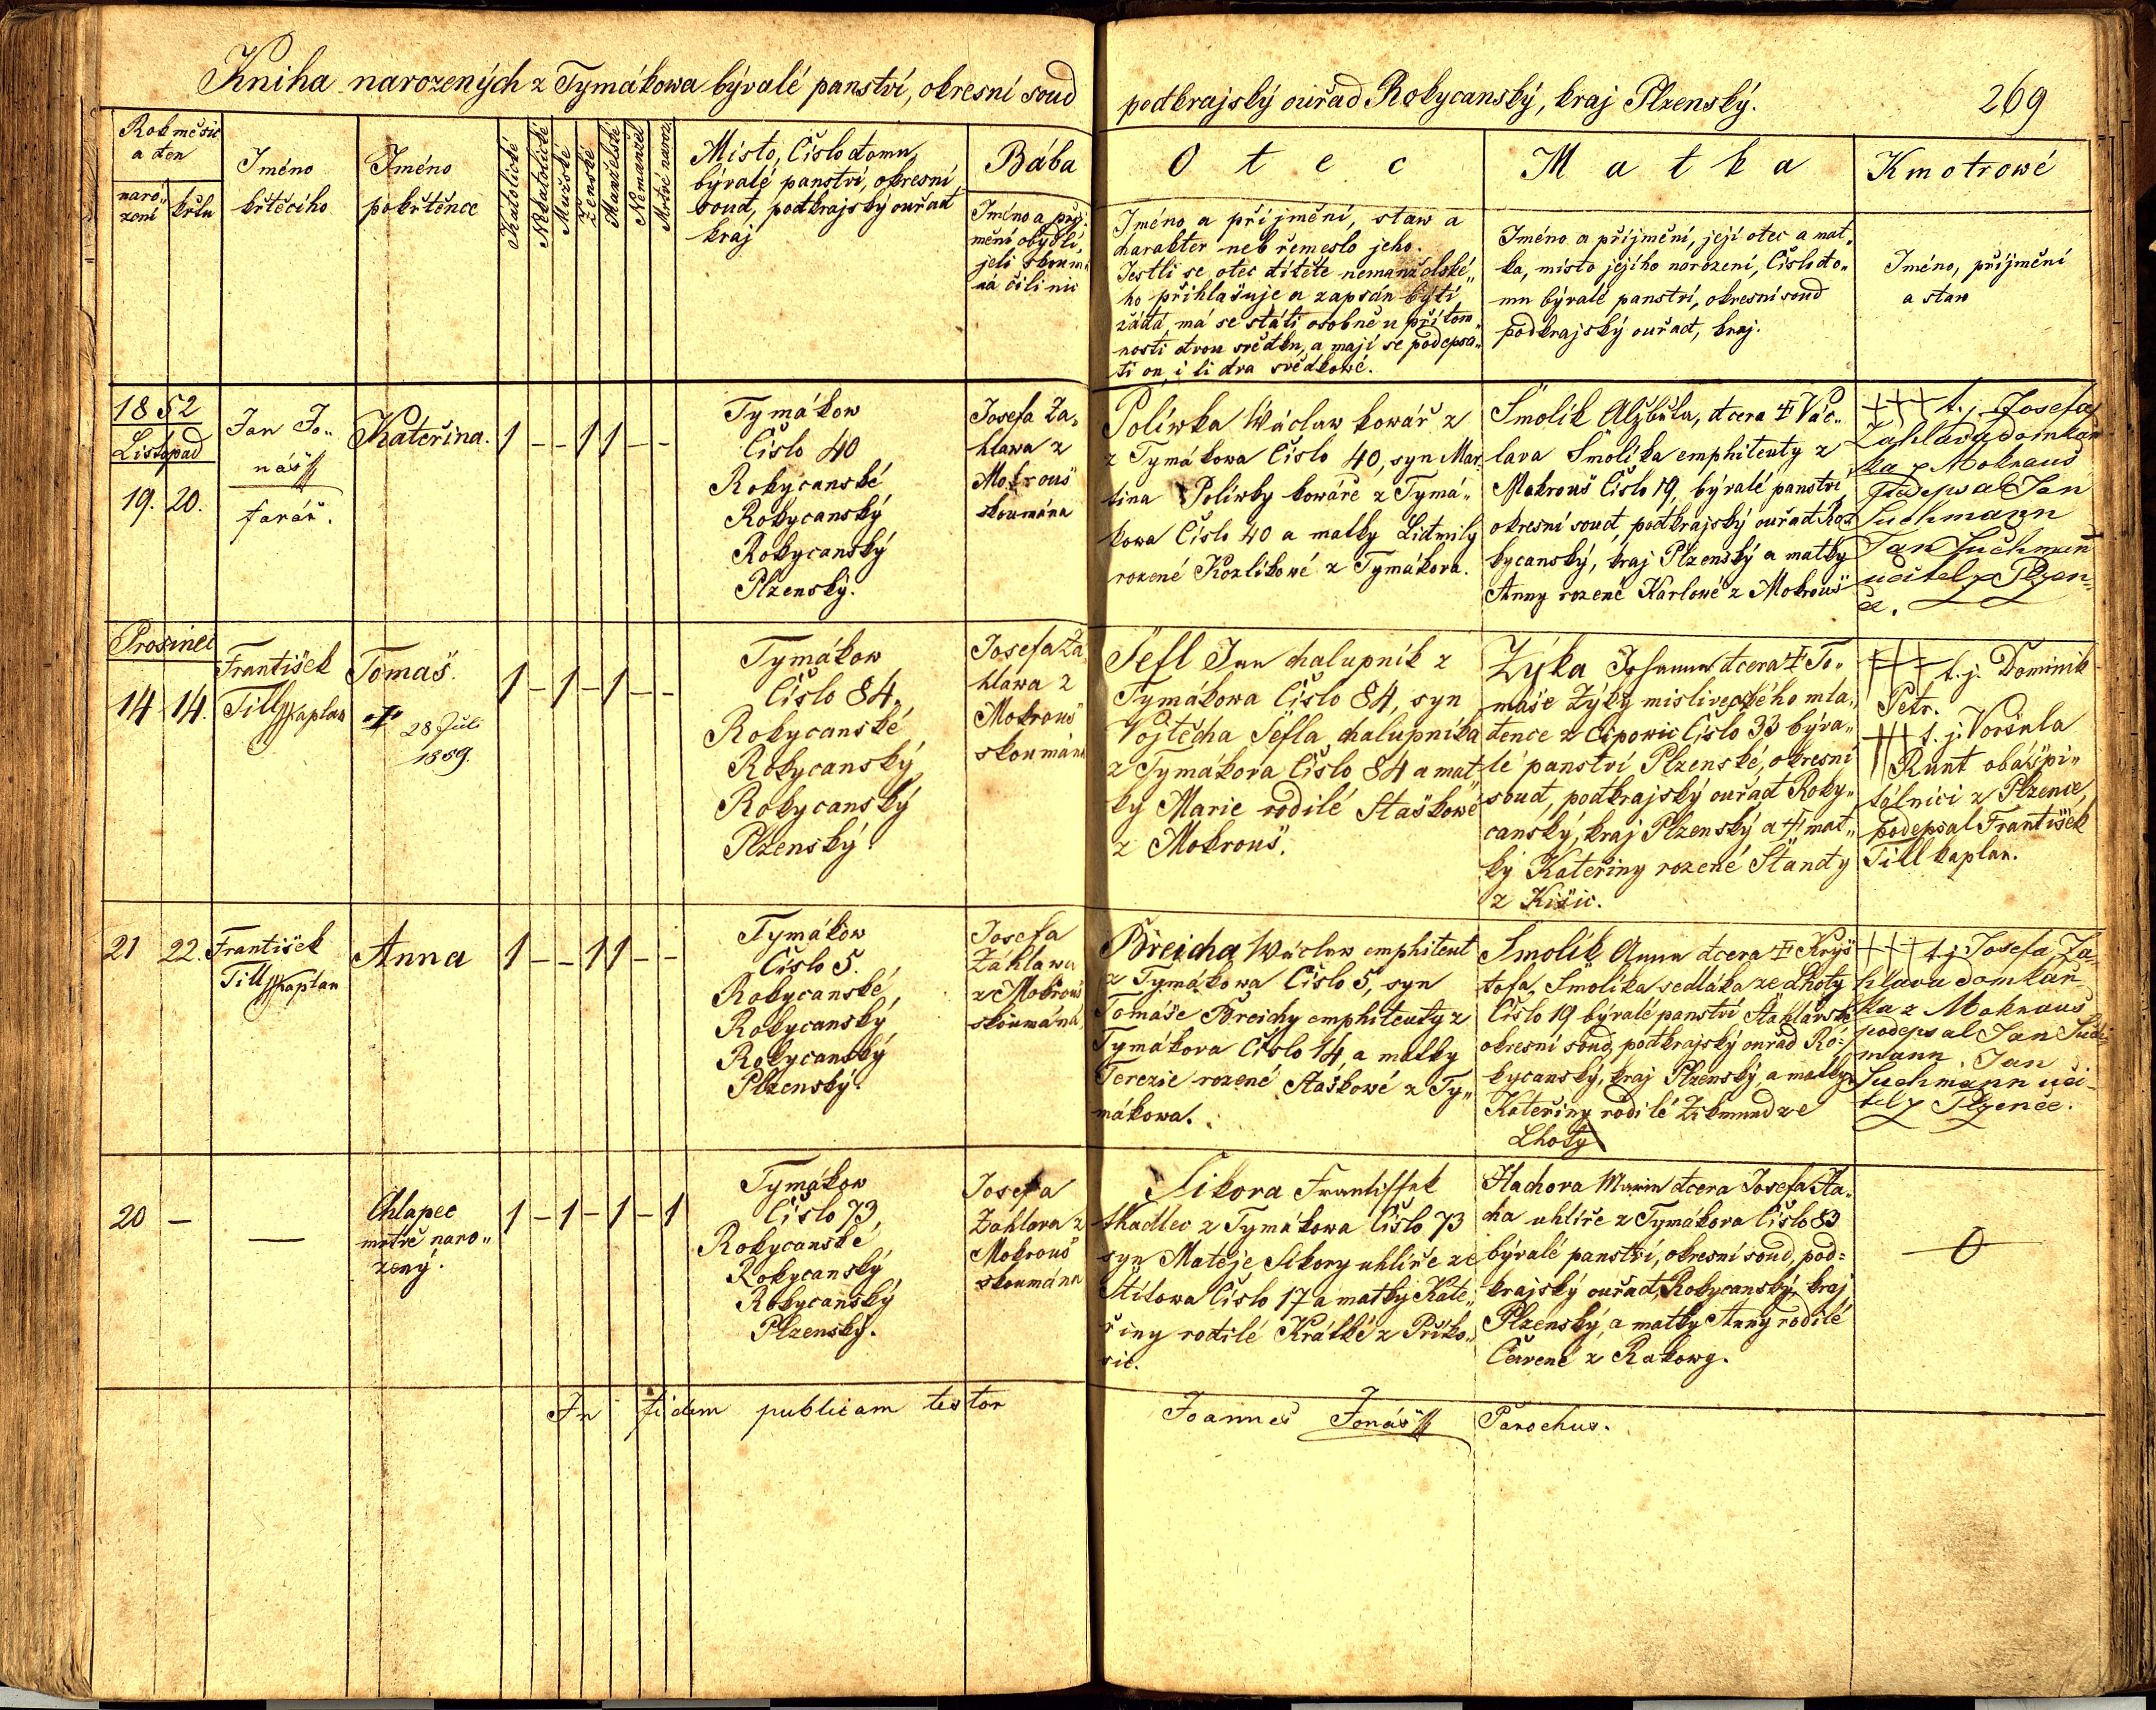 Kniha narozených z Tymákowa bývalé panství, okresní soud
podkrajský ouřad Rokycanský, kraj Plzenský.
269
Rok měsic
a den
naro„
zení
křtu
Jméno
křtěcího
Jméno
pokřtěnce
Katolické
Nekatolické
Mužské
Ženské
Manželské
Nemanžel
Mrtvé naroz.
Místo, Číslo domu,
bývalé panství, okresní
soud, podkrajský ouřad
kraj
Bába
Jméno a příj„
mění obydlí,
jeli skoum„
ná čili nic
Otec
Jméno a příjmění, staw a
charakter neb řemeslo jeho.
Jestli se otec dítěte nemanželské„
ho přihlašuje a zapsán býti
žádá, má se státi osobně u přítom„
nosti dvou svědku, a mají se podepsa„
ti on, i ti dva svědkové.
Matka
Jméno a příjmění, její otec a mat„
ka, místo jejího narození, Číslo do„
mu bývalé panství, okresní soud
podkrajský ouřad, kraj.
Kmotrowé
Jméno, příjmění
a staw
1852
Listopad
19. 20.
Jan Jo„
náš
farář.
Kateřina.
1 – – 1 1 – –
Tymákow
Číslo 40
Rokycanské
Rokycanský
Rokycanský
Plzenský.
Josefa Za„
hlawa z
Mokrouš
skoumána
Polívka Wáclaw kowář z
z Tymákowa Číslo 40, syn Mar„
tina Polívky kowáře z Tymá„
kowa Číslo 40 a matky Lidmily
rozené Kozlíkowé z Tymákova.
Smolík Alžběta, dcera ‡ Vác„
lava Smolíka emphiteuty z
Mokrouš Číslo 19, bývalé panství
okresní soud, podkrajský ouřad Ro„
kycanský, kraj Plzenský a matky
Anny rozené Karlowé z Mokrouš
+++ t. j. Josefa
Zahlava domkař
ka z Mokrauš
podepsal Jan
Suchmann
Jan Suchman
učitel z Plzen„
ce.
Prosinec
14 14.
František
Till Kaplan
Tomáš.
‡ 28 Juli
1859.
1 – 1 – 1 – –
Tymákow
Číslo 84,
Rokycanské,
Rokycanský
Rokycanský
Plzenský.
Josefa Za„
hlawa z
Mokrouš
skoumána
Šefl Jan chalupník z
Tymákowa Číslo 84, syn
Vojtěcha Šefla chalupníka
z Tymákova Číslo 84 a mat„
ky Marie rodilé Staškowé
z Mokrouš.
Zýka Johanna dcera ‡ To„
máše Zýky mysliveckého mlá„
dence z Ejpowic Číslo 33 býva„
lé panství Plzenské, okresní
soud, podkrajský ouřad Roky„
canský, kraj Plzenský a ‡ mat„
ky Kateřiny rozené Standy
z Kišic.
+++ t. j. Dominik
Petr.
+++ t. j. Voršula
Runt oba špi„
tálníci z Plzence,
podepsal František
Till kaplan.
21 22.
František
Till Kaplan
Anna
1 – – 1 1 – –
Tymákow
Číslo 5.
Rokycanské,
Rokycanský
Rokycanský
Plzenský.
Josefa
Záhlawa
z Mokrouš
skoumána
Breicha Wáclaw emphiteut
z Tymákowa Číslo 5, syn
Tomáše Breichy emphiteuty z
Tymákova Číslo 14, a matky
Terezie rozené Staškowé z Ty„
mákowa.
Smolík Anna dcera ‡ Kryš
tofa Smolíka sedláka ze Lhoty
Číslo 19 bývalé panství Štáhlawské
okresní soud, podkrajský ouřad Ro=
kycanský, kraj Plzenský, a matky
Kateřiny rodilé Zikmund ze
Lhoty
+++ t. j. Josefa Za„
hlava domkař„
ka z Mokrauš
podepsal Jan Such
mann. Jan
Suchmann uči„
tel z Plzence.
20 —
—
Chlapec
mrtvě naro„
zený.
1 – 1 – 1 – 1
Tymákow
Číslo 73,
Rokycanské,
Rokycanský
Rokycanský
Plzenský.
Josefa
Zahlava z
Mokrouš
skoumána
Sikora Frantisssek
tkadlec z Tymákowa Číslo 73
syn Matěje Sikory uhlíře ze
Stítowa Číslo 17 a matky Kate„
řiny rodilé Krátké z Příko„
sic.
Hachova Marie dcera Josefa Ha„
cha uhlíře z Tymákova Číslo 83
bývalé panství, okresní soud, pod=
krajský ouřad, Rokycanský, kraj
Plzenský, a matky Anny rodilé
Červené z Rakowy.
0
In fidem publicam testor
Joannes Jonáš
Parochus.